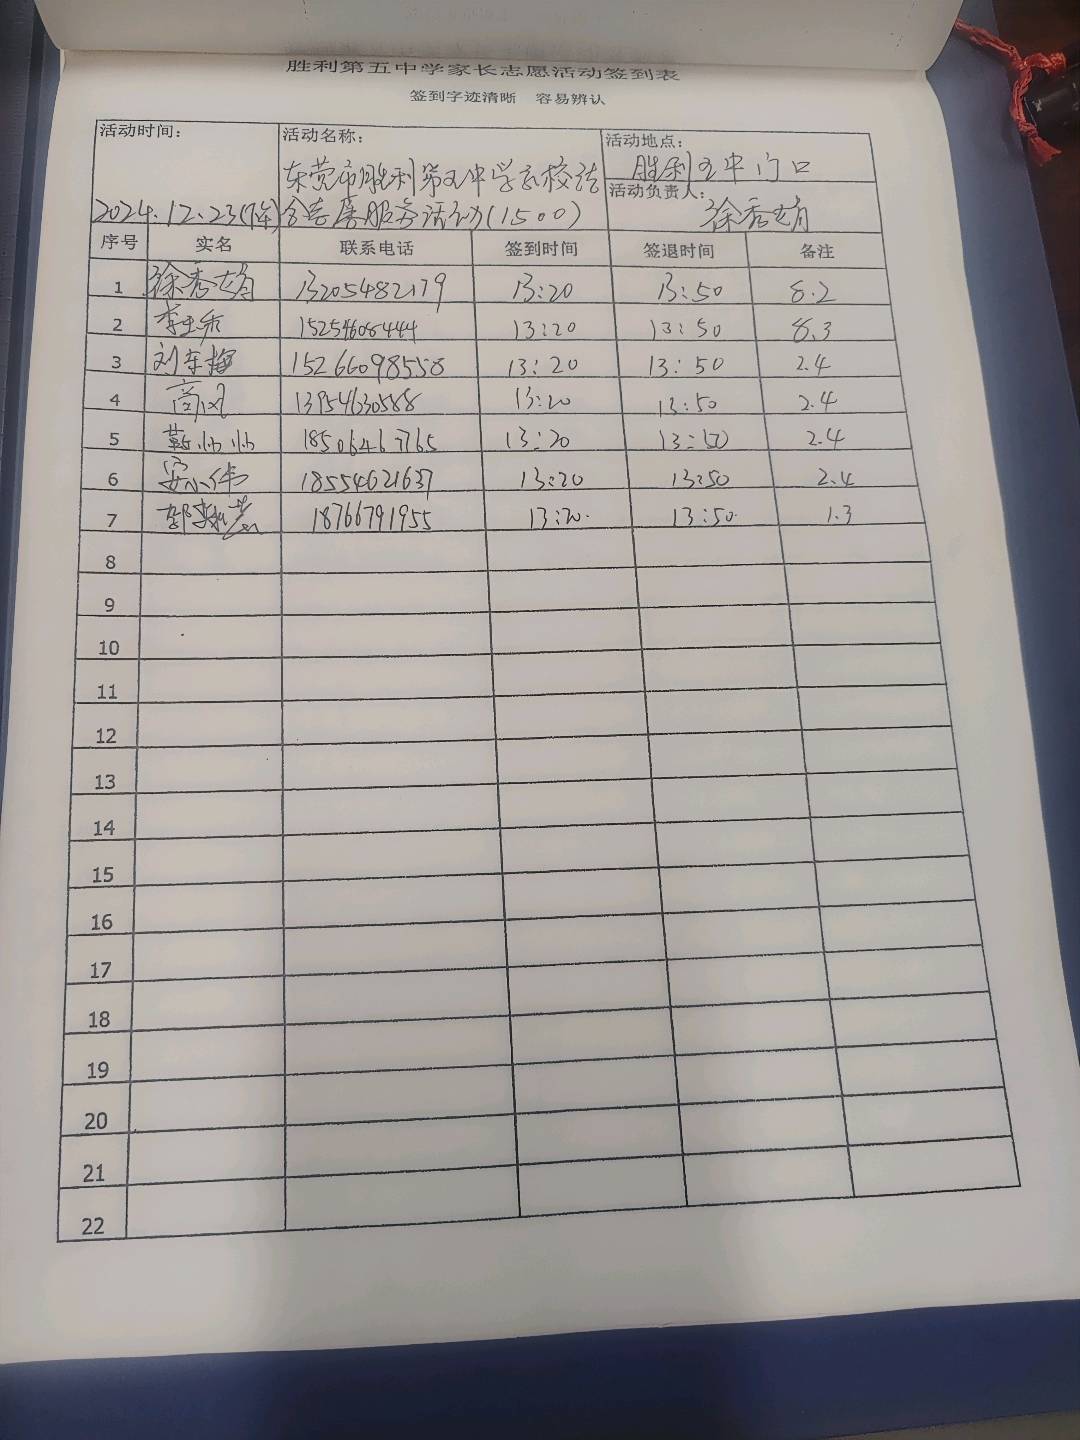 胜利第五中学家长志愿活动签到表
签到字迹清晰 容易辨认
活动时间: 活动名称: 活动地点:
胜利五中门口
东营市胜利第五中学家校
活动负责人:
2024.12.23(下午) 志愿服务活动(1500) 徐秀娟
序号 实名 联系电话 签到时间 签退时间 备注
1 徐秀娟 13205482179 13:20 13:50 8.2
2 15254608444 13:20 13:50 8.3
3 刘东梅 15266098558 13:20 13:50 2.4
4 高凤 13954630588 13:20 13:50 2.4
5 靳帅帅 18506467765 13:20 13:50 2.4
6 安小伟 18554621637 13:20 13:50 2.4
7 18766791955 13:20 13:50 1.3
8
9
10
11
12
13
14
15
16
17
18
19
20
21
22